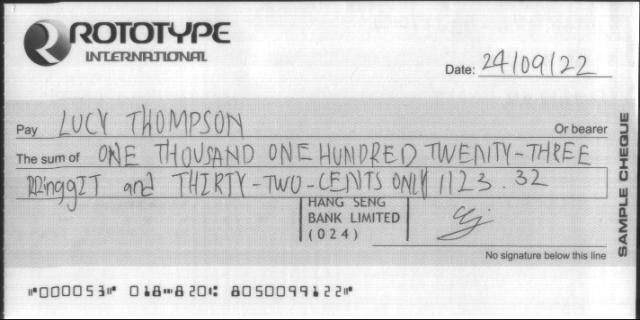 ROTOTYPE
INTERNATIONAL
Date: 24/09/22
Pay LUCY THOMPSON Or bearer
The sum of ONE THOUSAND ONE HUNDRED TWENITY-THREE
RRinggIT and THIRTY-TWO-CENTS ONLY 1123.32
HANG SENG
BANK LIMITED
(024)
No signature below this line
SAMPLE CHEQUE
⑈000053⑈ 018⑉820⑆ 8050099122⑈